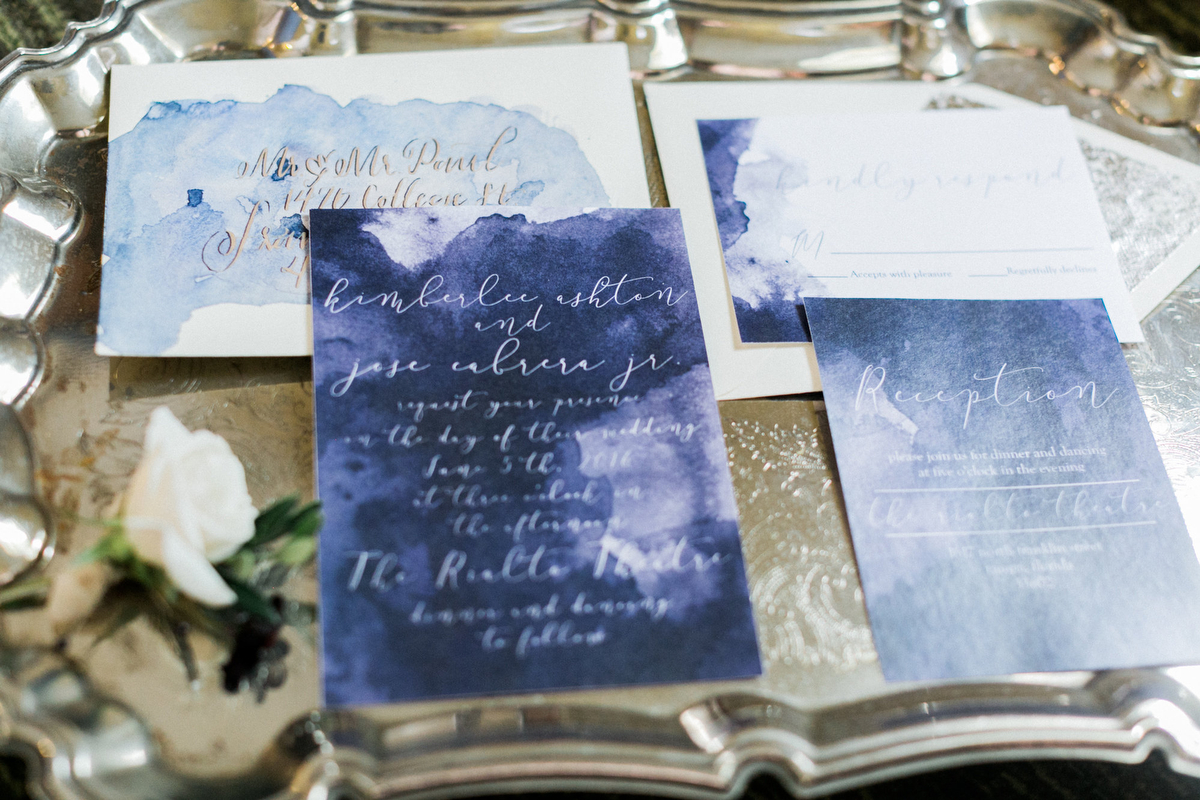 Mr & Mr
kimberlee ashton
and
jose cabrera jr.
request your presence
on the day of their wedding
June 5th, 2016
at three o'clock in
the afternoon
The Rialto Theatre
dinner and dancing
to follow
kindly respond
M
Accepts with pleasure Regretfully declines
Reception
please join us for dinner and dancing
at five o'clock in the evening
the rialto theatre